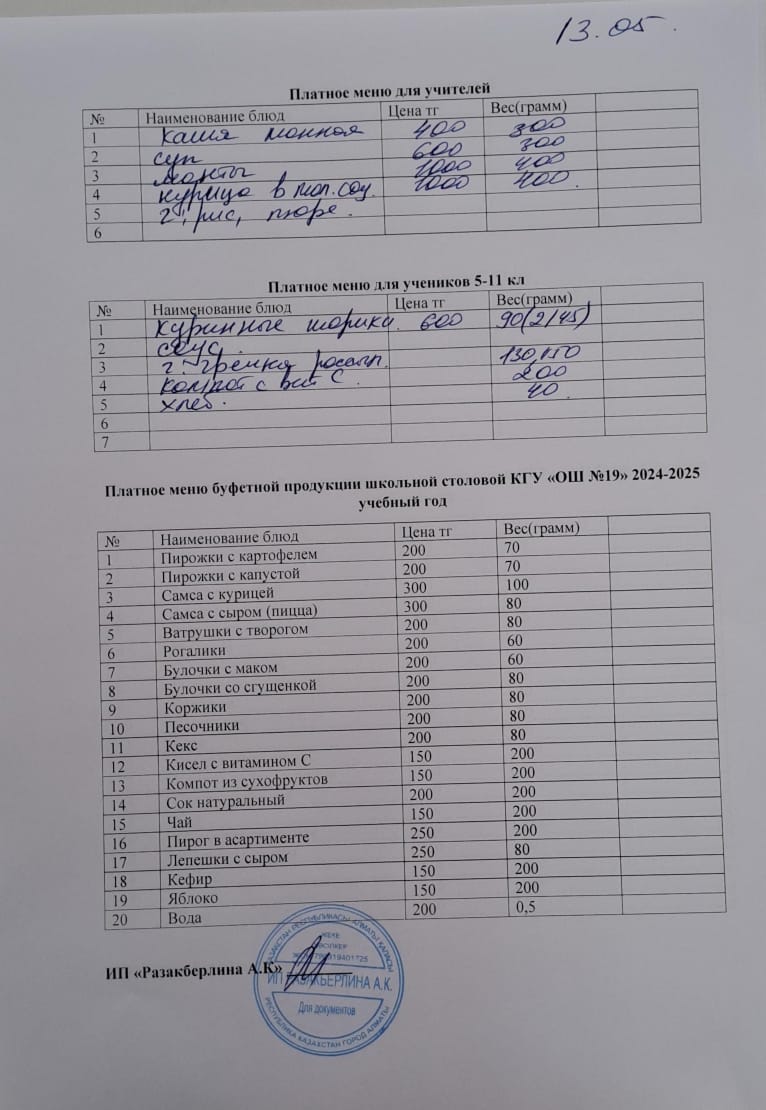 13.05.
Платное меню для учителей
№ Наименование блюд Цена тг Вес(грамм)
1 Каша манная 400 300
2 суп 600 300
3 манты 1000 400
4 курица в том. соу. 1000 400.
5 г: рис, пюре.
6
Платное меню для учеников 5-11 кл
№ Наименование блюд Цена тг Вес(грамм)
1 Куринные шарики. 600 90(2/45)
2 соус.
3 г: гречка рассып. 130,150
4 компот с вит С. 200
5 хлеб. 40.
6
7
Платное меню буфетной продукции школьной столовой КГУ «ОШ №19» 2024-2025
учебный год
№ Наименование блюд Цена тг Вес(грамм)
1 Пирожки с картофелем 200 70
2 Пирожки с капустой 200 70
3 Самса с курицей 300 100
4 Самса с сыром (пицца) 300 80
5 Ватрушки с творогом 200 80
6 Рогалики 200 60
7 Булочки с маком 200 60
8 Булочки со сгущенкой 200 80
9 Коржики 200 80
10 Песочники 200 80
11 Кекс 200 80
12 Кисел с витамином С 150 200
13 Компот из сухофруктов 150 200
14 Сок натуральный 200 200
15 Чай 150 200
16 Пирог в асартименте 250 200
17 Лепешки с сыром 250 80
18 Кефир 150 200
19 Яблоко 150 200
20 Вода 200 0,5
ИП «Разакберлина А.К»
ҚАЗАҚСТАН РЕСПУБЛИКАСЫ АЛМАТЫ ҚАЛАСЫ
ЖЕКЕ
КӘСІПКЕР
ИП РАЗАКБЕРЛИНА А.К.
Для документов
РЕСПУБЛИКА КАЗАХСТАН ГОРОД АЛМАТЫ